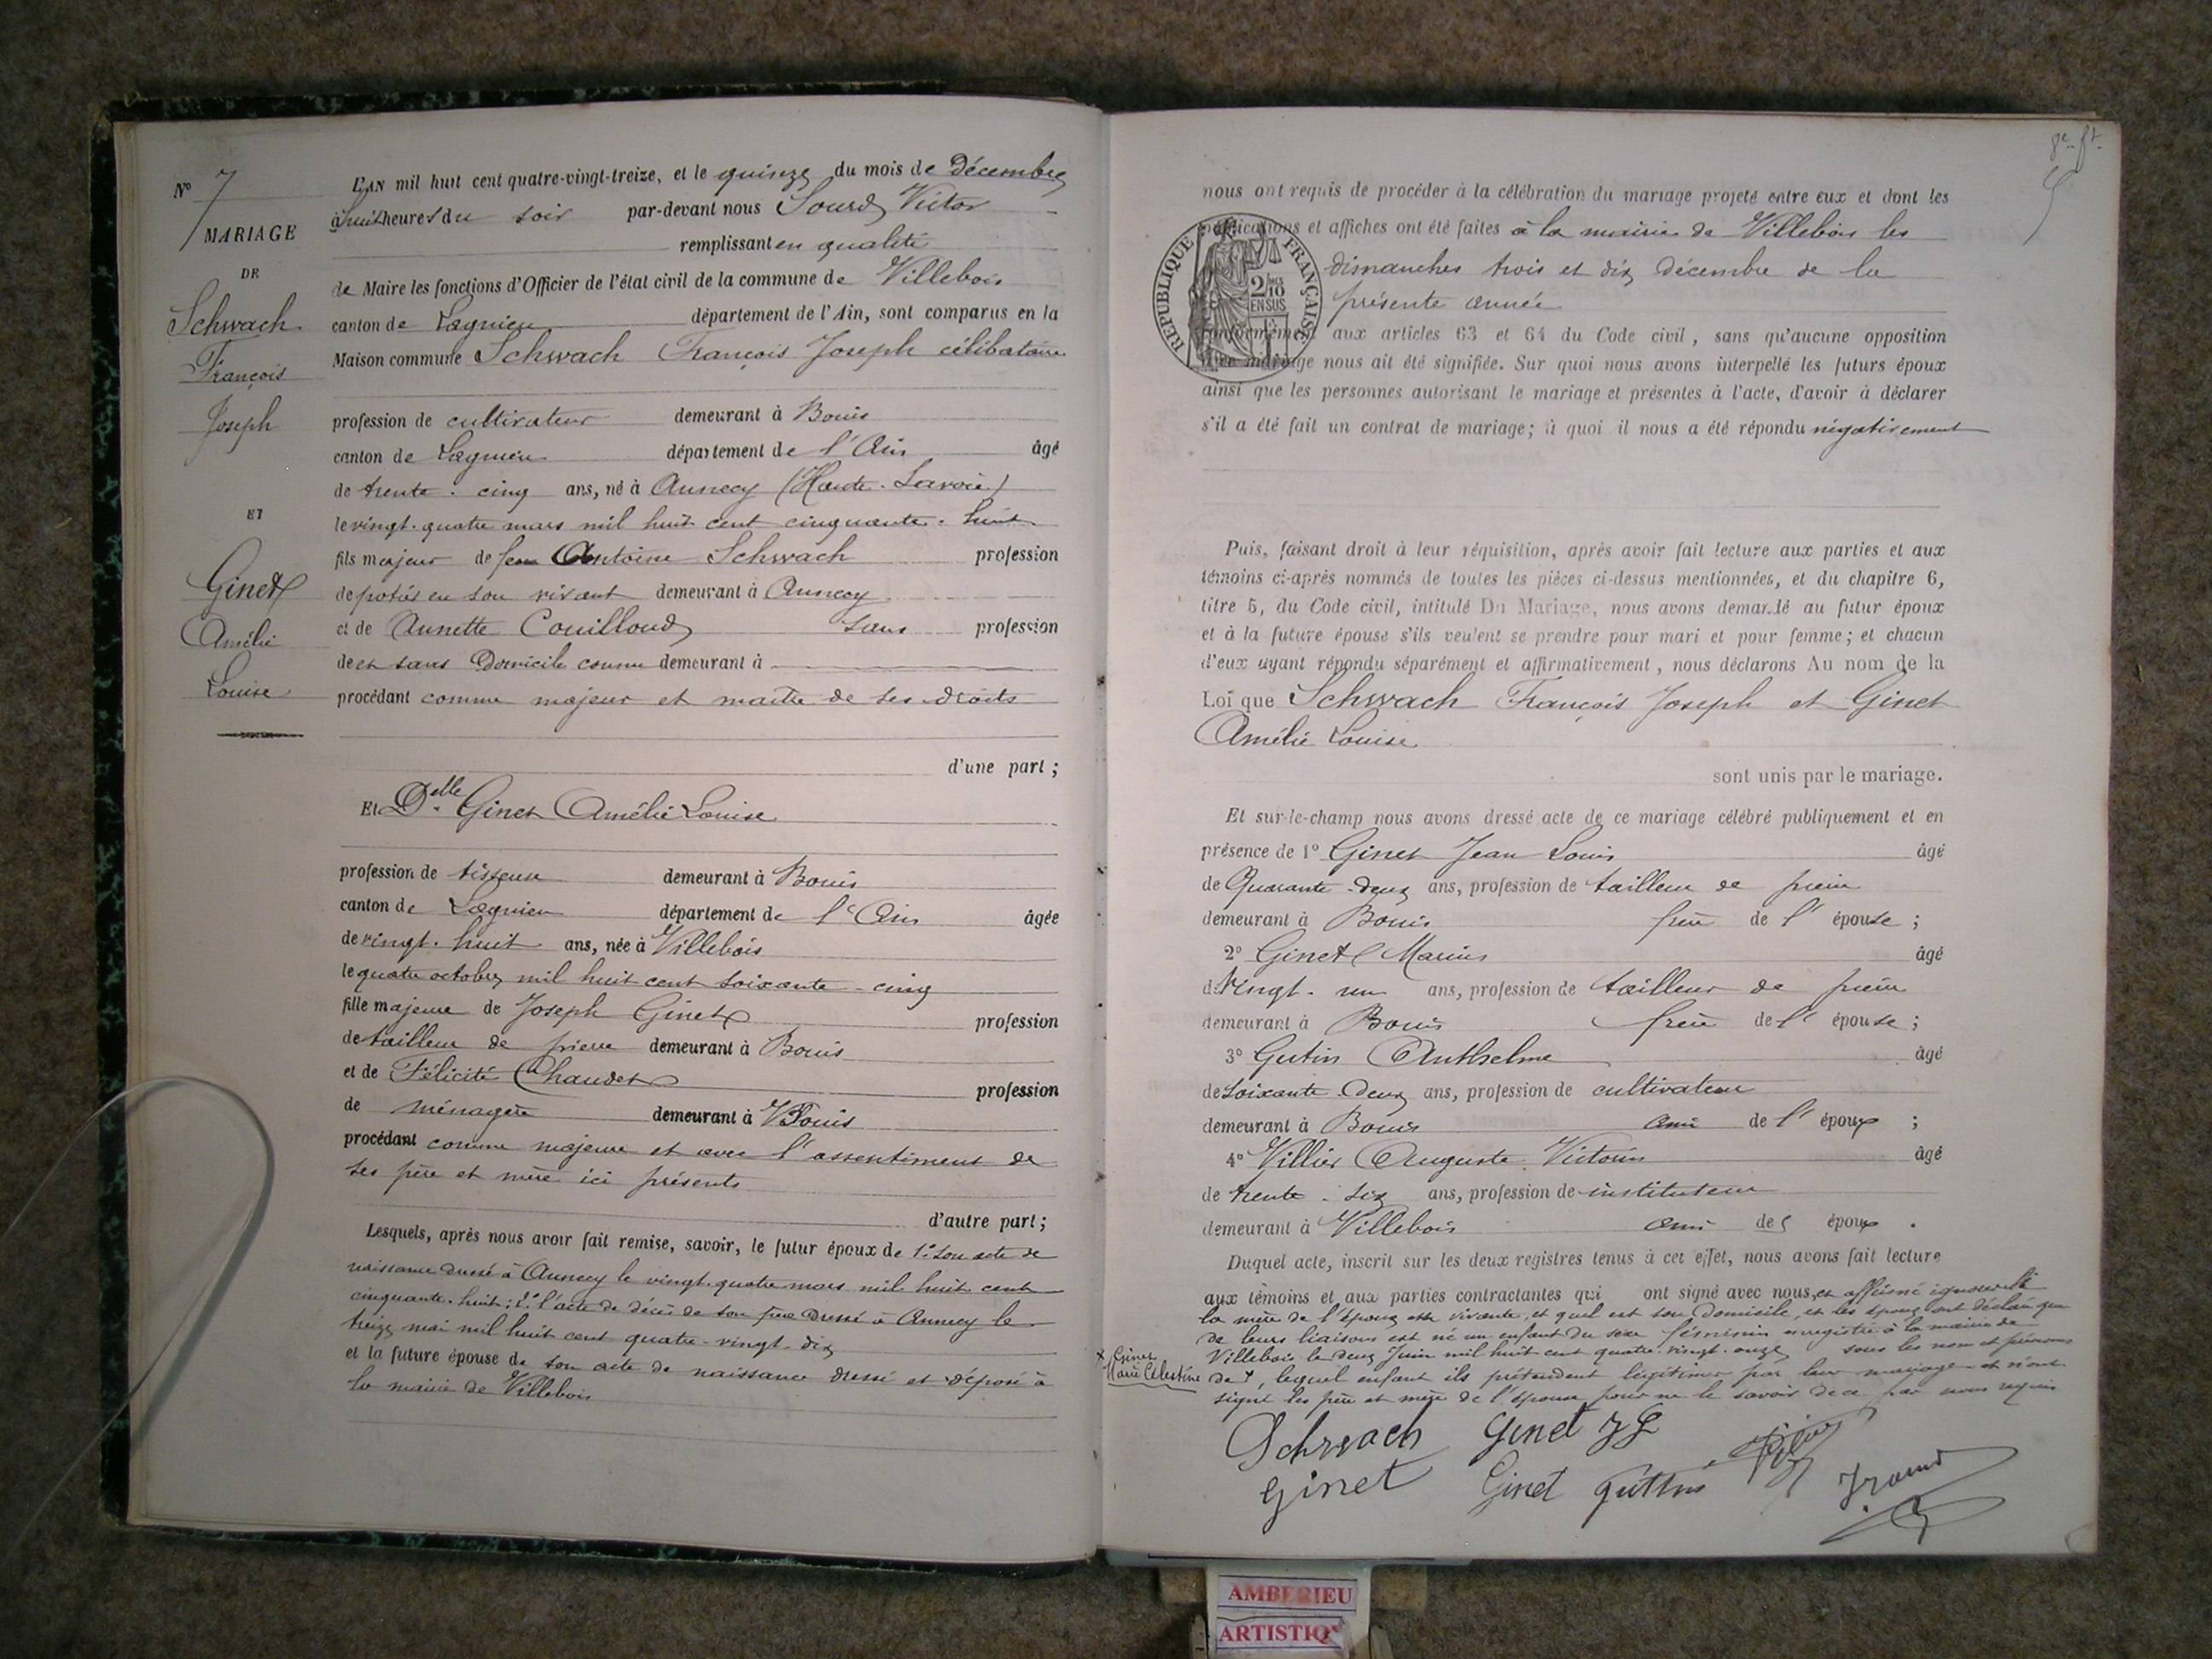 N° 7
MARIAGE
DE
Schwach
François
Joseph
ET
Ginet
Amélie
Louise
L'AN mil huit cent quatre-vingt-treize, et le quinze du mois de Décembre
à huit heures du soir par-devant nous Sourd Victor
remplissant en qualité
de Maire les fonctions d'Officier de l'état civil de la commune de Villebois
canton de Lagnieu département de l'Ain, sont comparus en la
Maison commune Schwach François Joseph célibataire
profession de cultivateur demeurant à Bouis
canton de Lagnieu département de l'Ain âgé
de trente-cinq ans, né à Annecy (Haute-Savoie)
le vingt-quatre mars mil huit cent cinquante-huit
fils majeur de feu Antoine Schwach profession
de potier en son vivant demeurant à Annecy
et de Annette Couilloud sans profession
de et sans Domicile connu demeurant à
procédant comme majeur et maître de ses droits
d'une part ;
Et Delle Ginet Amélie Louise
profession de tisseuse demeurant à Bouis
canton de Lagnieu département de l'Ain âgée
de vingt-huit ans, née à Villebois
le quatre octobre mil huit cent soixante-cinq
fille majeure de Joseph Ginet profession
de tailleur de pierre demeurant à Bouis
et de Félicité Chaudet profession
de ménagère demeurant à Bouis
procédant comme majeure et avec l'assentiment de
ses père et mère ici présents
d'autre part ;
Lesquels, après nous avoir fait remise, savoir, le futur époux de 1° son acte de
naissance dressé à Annecy le vingt-quatre mars mil huit cent
cinquante-huit ; 2° l'acte de décès de son père Dressé à Annecy le
treize mai mil huit cent quatre-vingt-dix
et la future épouse de son acte de naissance dressé et déposé à
la mairie de Villebois
8e ft
nous ont requis de procéder à la célébration du mariage projeté entre eux et dont les
publications et affiches ont été faites à la mairie de Villebois les
dimanches trois et dix décembre de la
présente année
RÉPUBLIQUE FRANÇAISE
2/10
EN SUS
conformément aux articles 63 et 64 du Code civil, sans qu'aucune opposition
à ce mariage nous ait été signifiée. Sur quoi nous avons interpellé les futurs époux
ainsi que les personnes autorisant le mariage et présentes à l'acte, d'avoir à déclarer
s'il a été fait un contrat de mariage; à quoi il nous a été répondu négativement
Puis, faisant droit à leur réquisition, après avoir fait lecture aux parties et aux
témoins ci-après nommés de toutes les pièces ci-dessus mentionnées, et du chapitre 6,
titre 5, du Code civil, intitulé Du Mariage, nous avons demandé au futur époux
et à la future épouse s'ils veulent se prendre pour mari et pour femme; et chacun
d'eux ayant répondu séparément et affirmativement, nous déclarons Au nom de la
Loi que Schwach François Joseph et Ginet
Amélie Louise
sont unis par le mariage.
Et sur-le-champ nous avons dressé acte de ce mariage célébré publiquement et en
présence de 1° Ginet Jean Louis âgé
de Quarante-deux ans, profession de tailleur de pierre
demeurant à Bouis frère de l'épouse ;
2° Ginet Marius âgé
de Vingt-un ans, profession de tailleur de pierre
demeurant à Bouis frère de l'épouse ;
3° Gutin Anthelme âgé
de soixante-Deux ans, profession de cultivateur
demeurant à Bouis ami de l'époux ;
4° Villier Auguste Victorin âgé
de trente-six ans, profession de instituteur
demeurant à Villebois ami de l'époux .
Duquel acte, inscrit sur les deux registres tenus à cet effet, nous avons fait lecture
aux témoins et aux parties contractantes qui ont signé avec nous, et affirmé ignorer si
la mère de l'époux est vivante, et quel est son Domicile, et les époux ont déclaré que
de leurs liaisons est né un enfant du sexe féminin enregistré à la mairie de
Villebois le deux Juin mil huit cent quatre-vingt-onze sous les nom et prénoms
x Ginet
Marie Célestine
de x, lequel enfant ils prétendent légitimer par leur mariage et n'ont
signé les père et mère de l'épouse pour ne le savoir de ce par nous requis
Schwach Ginet JL
Ginet Ginet
AMBERIEU
ARTISTIQ